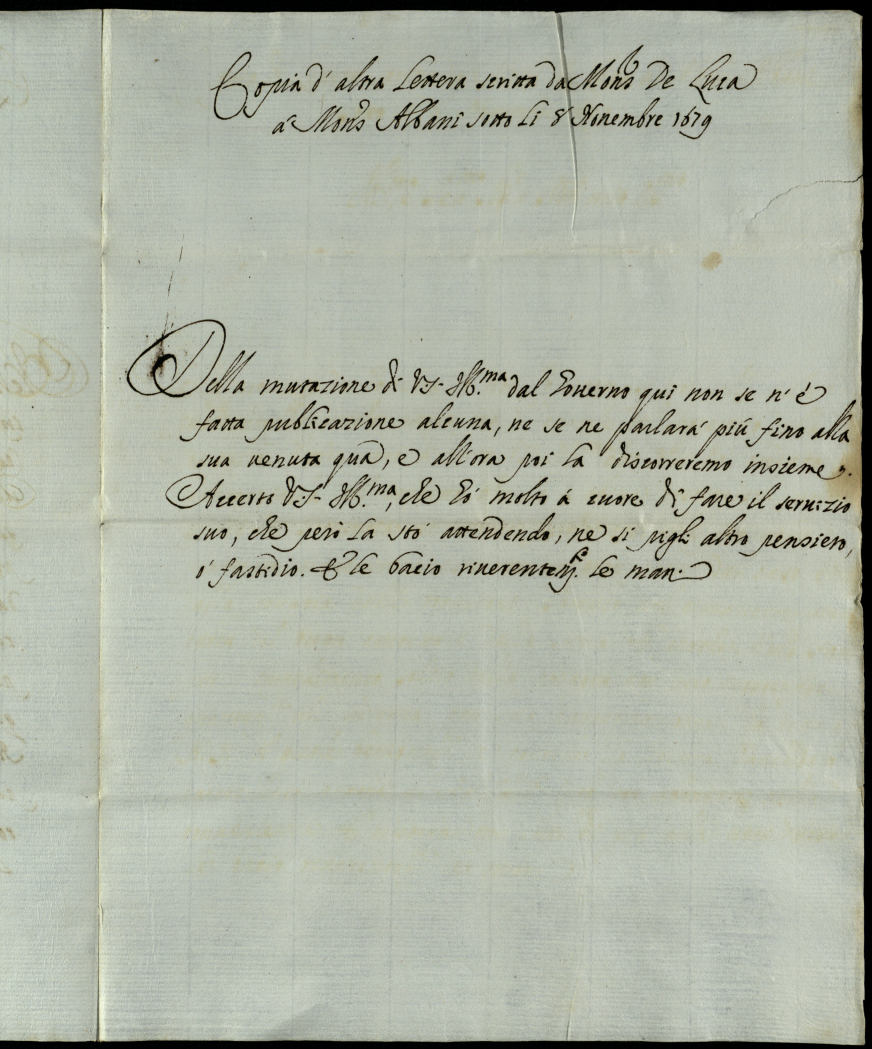 Copia d' altra Lettera scritta da Mons.r De Luca
à Mons.r Albani sotto li 8 Novembre 1679
Della mutazione di V.S. Ill.ma dal Governo qui non se n' è
fatta publicazione alcuna, ne se ne parlarà più fino alla
sua venuta quà, e all'ora poi la discorreremo insieme.
Accerto V.S. Ill.ma, che hò molto à cuore di fare il servizio
suo, che però la stò attendendo, ne si pigli altro pensiero,
ò fastidio. E le bacio riverentem.te le mani